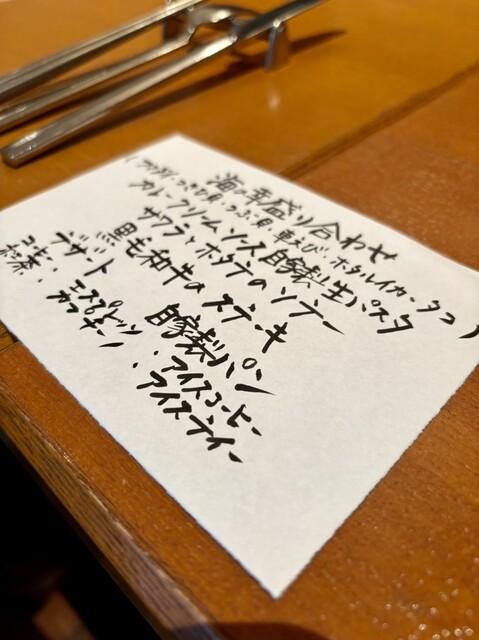 海の幸盛り合わせ
(アオリイカ・つきひ貝・つぶ貝・車えび・ホタルイカ・タコ)
カレークリームソース自家製生パスタ
サワラとホタテのソテー
黒毛和牛のステーキ
自家製パン
デザート
コーヒー・エスプレッソ・アイスコーヒー
紅茶・カプチーノ・アイスティー